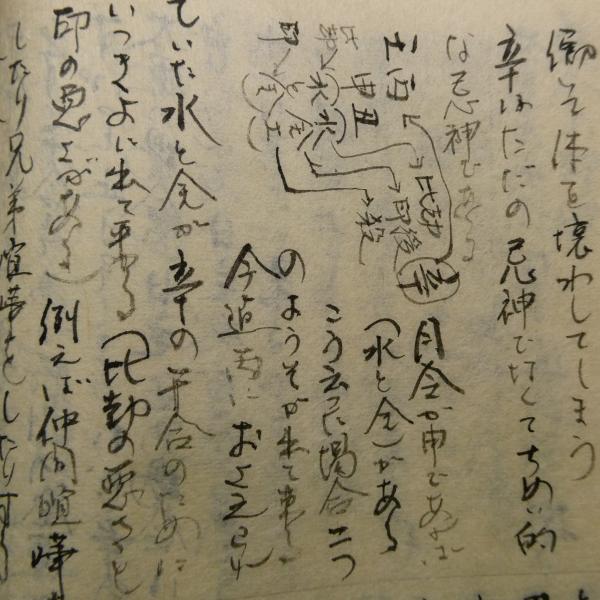 体を壊わしてしまう
辛はただの忌神でなくてちめい的
な忌神である
月令が申であれば
(水と金)がある
こう云う場合二つ
のようそが出て来る
今迄丙におさえられ
ていた水と金が辛の干合のために
いっきょに出て来る (比劫の悪さと
印の悪さがある) 例えば仲間喧嘩を
したり兄弟喧嘩をしたりする
比劫
印
殺
丑
申
水
金
土
辛